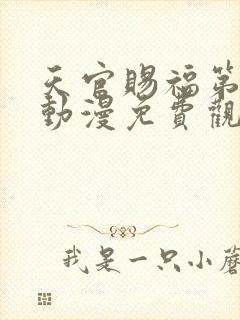 天官賜福第
動漫免費觀
我是一只小蘑